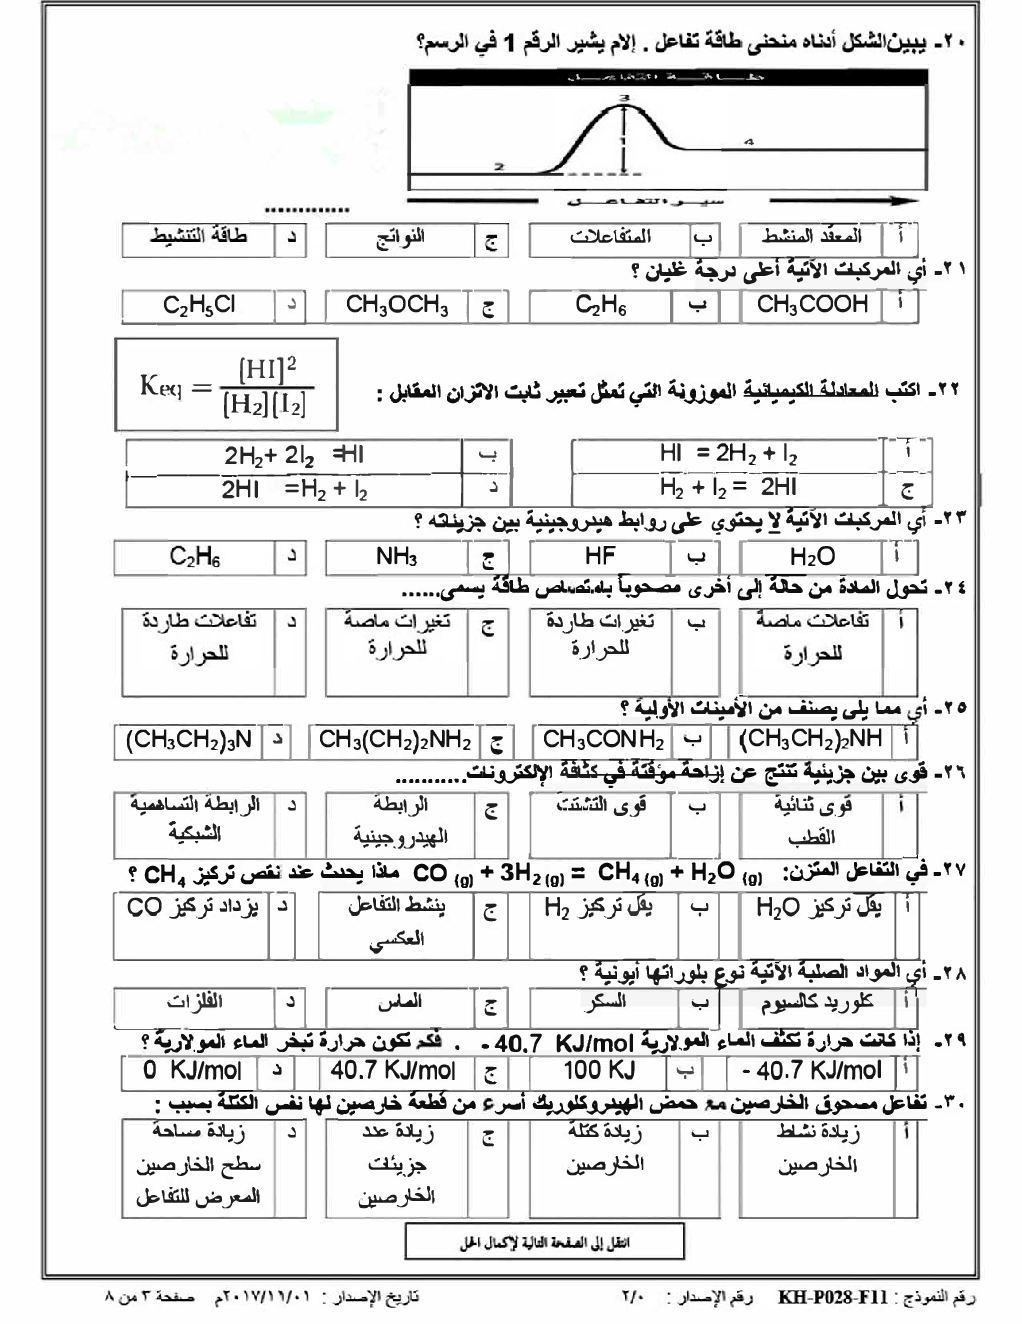 ٢٠- يبين الشكل أدناه منحنى طاقة تفاعل . إلام يشير الرقم 1 في الرسم؟
طاقة التفاعل
3
1
4
2
سير التفاعل
.............
أ المعقد المنشط ب المتفاعلات ج النواتج د طاقة التنشيط
٢١- أي المركبات الآتية أعلى درجة غليان ؟
أ CH₃COOH ب C₂H₆ ج CH₃OCH₃ د C₂H₅Cl
٢٢- اكتب المعادلة الكيميائية الموزونة التي تمثل تعبير ثابت الاتزان المقابل :
Keq = [HI]² / [H₂][I₂]
أ HI = 2H₂ + I₂ ب 2H₂+ 2I₂ =HI
ج H₂ + I₂ = 2HI د 2HI =H₂ + I₂
٢٣- أي المركبات الآتية لا يحتوي على روابط هيدروجينية بين جزيئاته ؟
أ H₂O ب HF ج NH₃ د C₂H₆
٢٤- تحول المادة من حالة إلى أخرى مصحوباً بامتصاص طاقة يسمى......
أ تفاعلات ماصة للحرارة ب تغيرات طاردة للحرارة ج تغيرات ماصة للحرارة د تفاعلات طاردة للحرارة
٢٥- أي مما يلي يصنف من الأمينات الأولية ؟
أ (CH₃CH₂)₂NH ب CH₃CONH₂ ج CH₃(CH₂)₂NH₂ د (CH₃CH₂)₃N
٢٦- قوى بين جزيئية تنتج عن إزاحة مؤقتة في كثافة الإلكترونات...........
أ قوى ثنائية القطب ب قوى التشتت ج الرابطة الهيدروجينية د الرابطة التساهمية الشبكية
٢٧- في التفاعل المتزن: CO (g) + 3H₂ (g) = CH₄ (g) + H₂O (g) ماذا يحدث عند نقص تركيز CH₄ ؟
أ يقل تركيز H₂O ب يقل تركيز H₂ ج ينشط التفاعل العكسي د يزداد تركيز CO
٢٨- أي المواد الصلبة الآتية نوع بلوراتها أيونية ؟
أ كلوريد كالسيوم ب السكر ج الماس د الفلزات
٢٩- إذا كانت حرارة تكثف الماء المولارية - 40.7 KJ/mol . فكم تكون حرارة تبخر الماء المولارية ؟
أ - 40.7 KJ/mol ب 100 KJ ج 40.7 KJ/mol د 0 KJ/mol
٣٠- تفاعل مسحوق الخارصين مع حمض الهيدروكلوريك أسرع من قطعة خارصين لها نفس الكتلة بسبب :
أ زيادة نشاط الخارصين ب زيادة كتلة الخارصين ج زيادة عدد جزيئات الخارصين د زيادة مساحة سطح الخارصين المعرض للتفاعل
انتقل إلى الصفحة التالية لإكمال الحل
رقم النموذج : KH-P028-F11 رقم الإصدار : ٢/٠ تاريخ الإصدار : ٢٠١٧/١١/٠١م صفحة ٣ من ٨